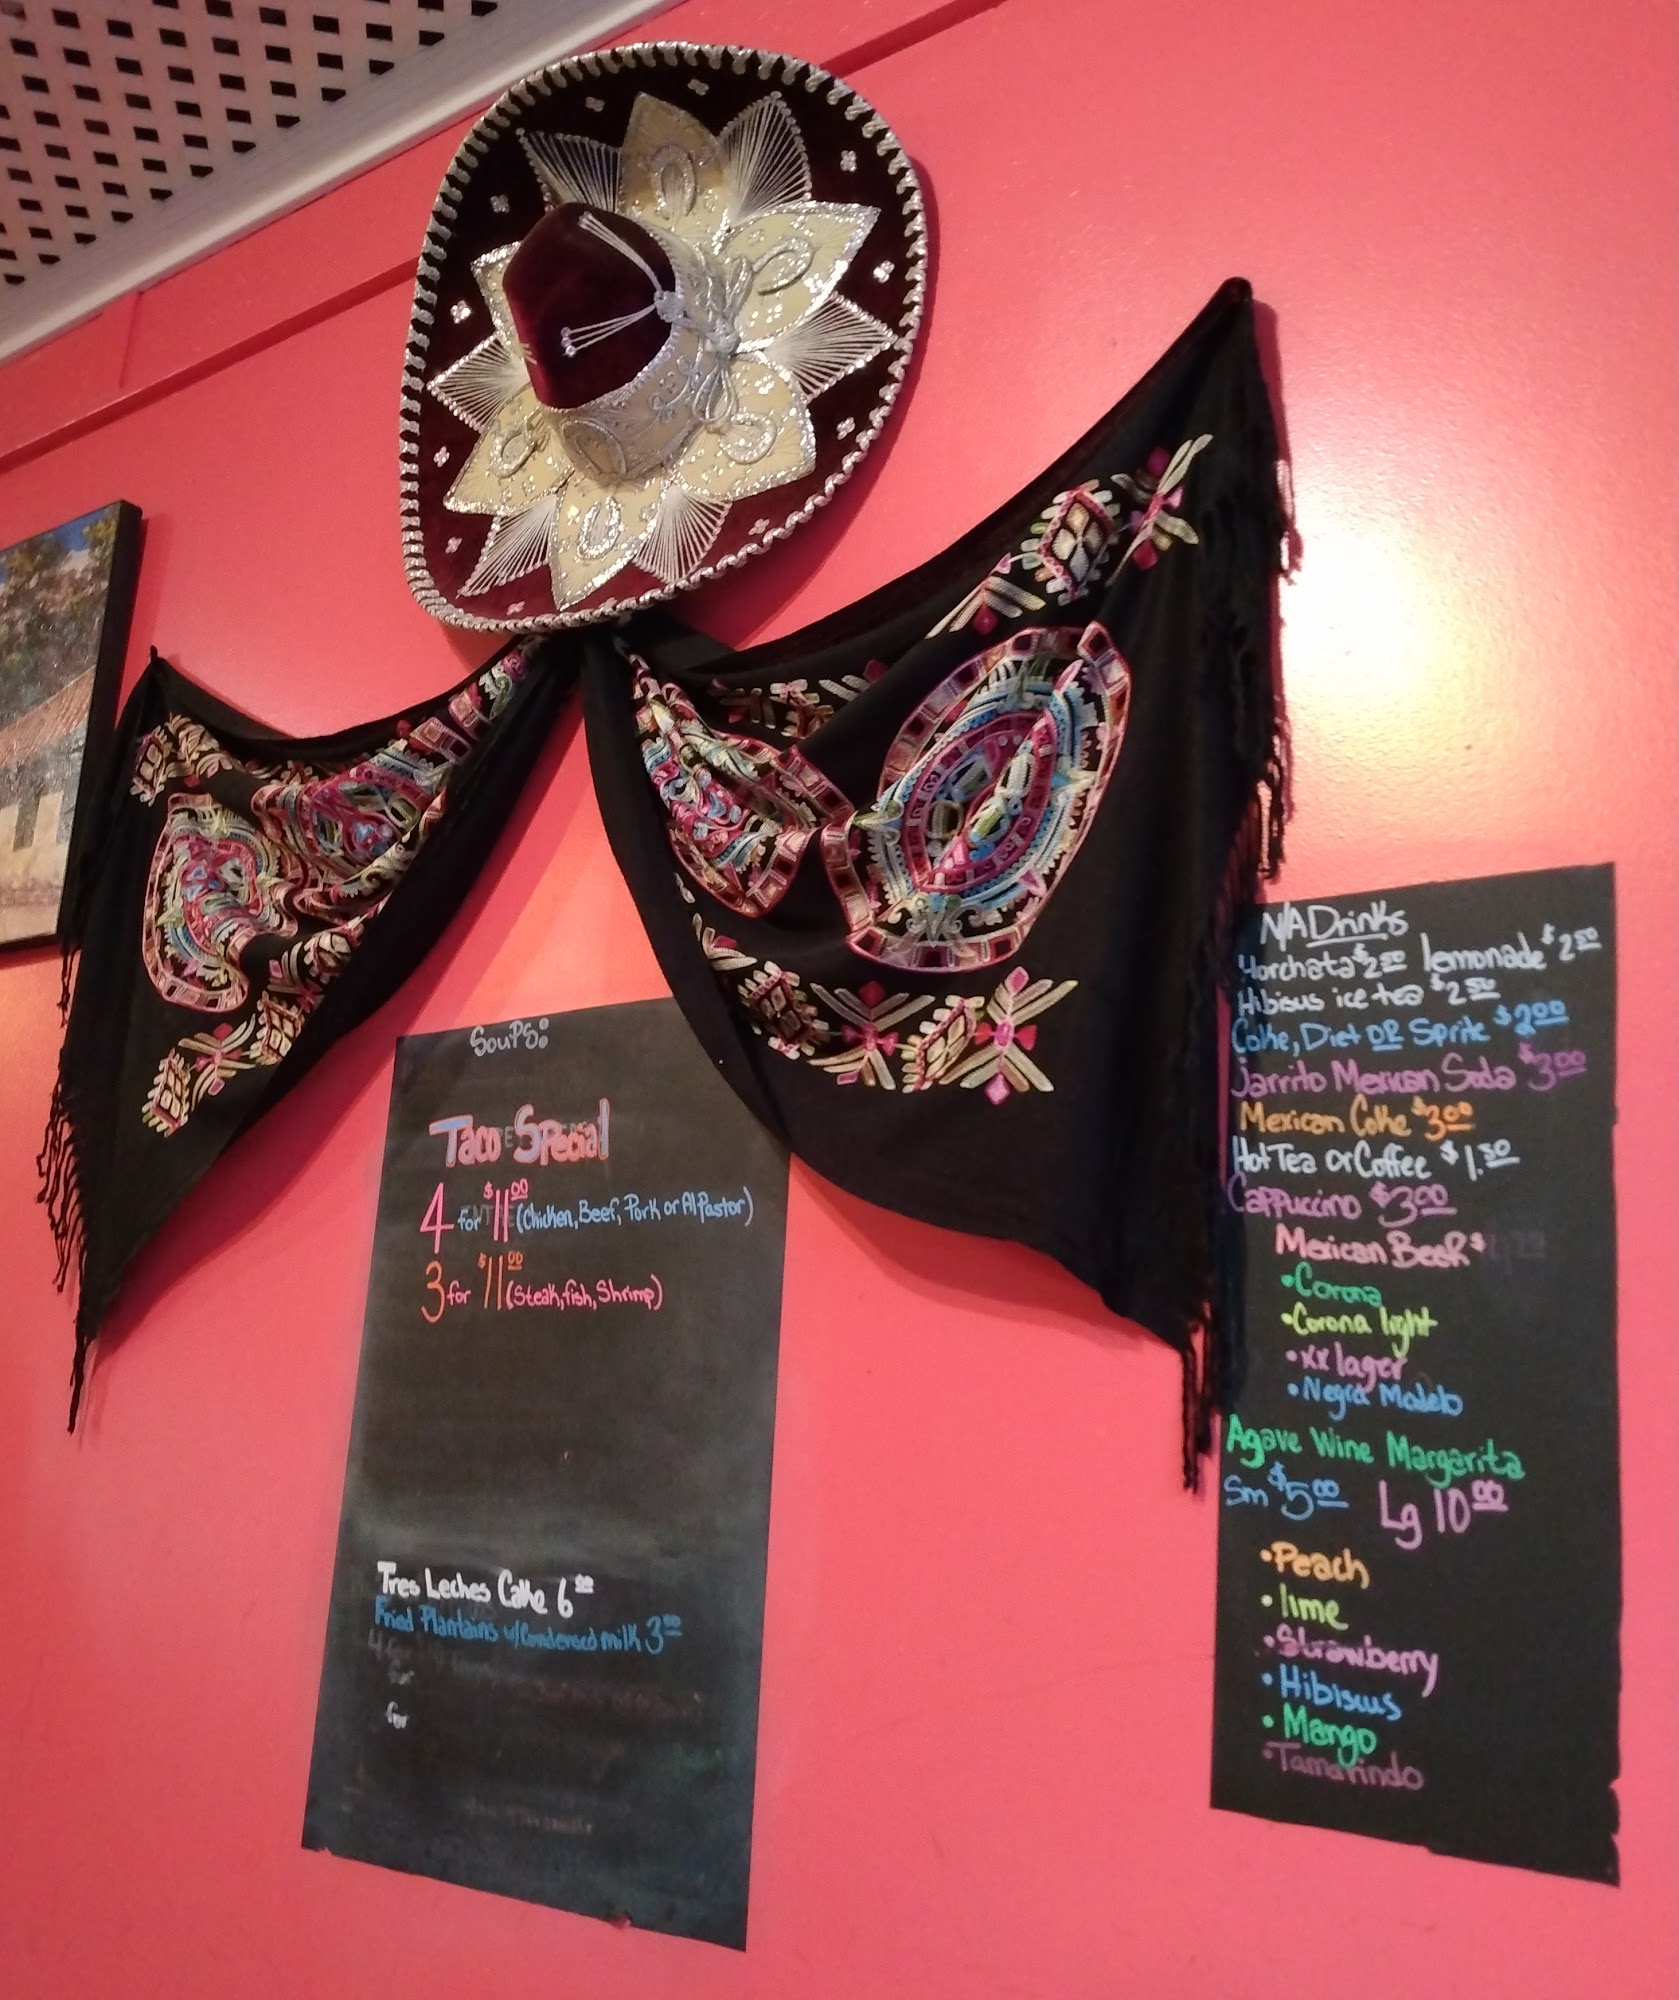 Soups:
Taco Special
4 for $11.00 (Chicken, Beef, Pork or Al Pastor)
3 for $11.00 (Steak, fish, Shrimp)
Tres Leches Cake 6.00
Fried Plantains w/Condensed milk 3.00
4 for
for
for
N/A Drinks
Horchata $2.00 lemonade $2.00
Hibisus ice tea $2.50
Coke, Diet OR Sprite $2.00
Jarrito Mexican Soda $3.00
Mexican Coke $3.00
Hot Tea or Coffee $1.50
Cappuccino $3.00
Mexican Beer $
• Corona
• Corona light
• xx lager
• Negra Modelo
Agave Wine Margarita
Sm $5.00 Lg 10.00
• Peach
• lime
• Strawberry
• Hibiscus
• Mango
• Tamarindo